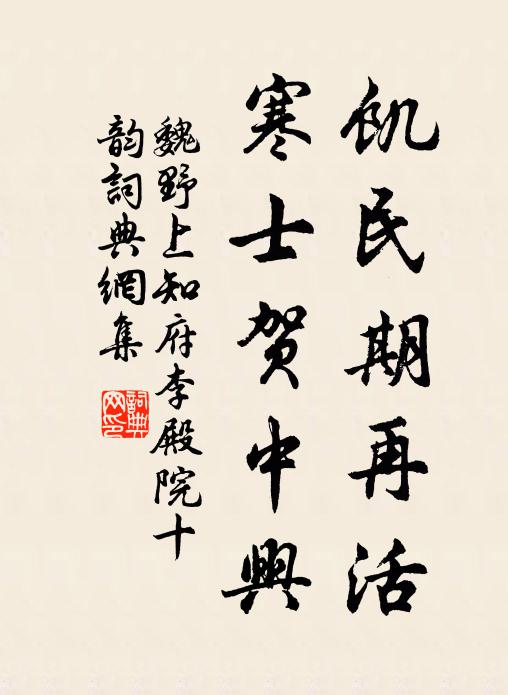 飢民期再活
寒士贺中興
魏野上知府李殿院十
韵詞典網集
詞典
网印